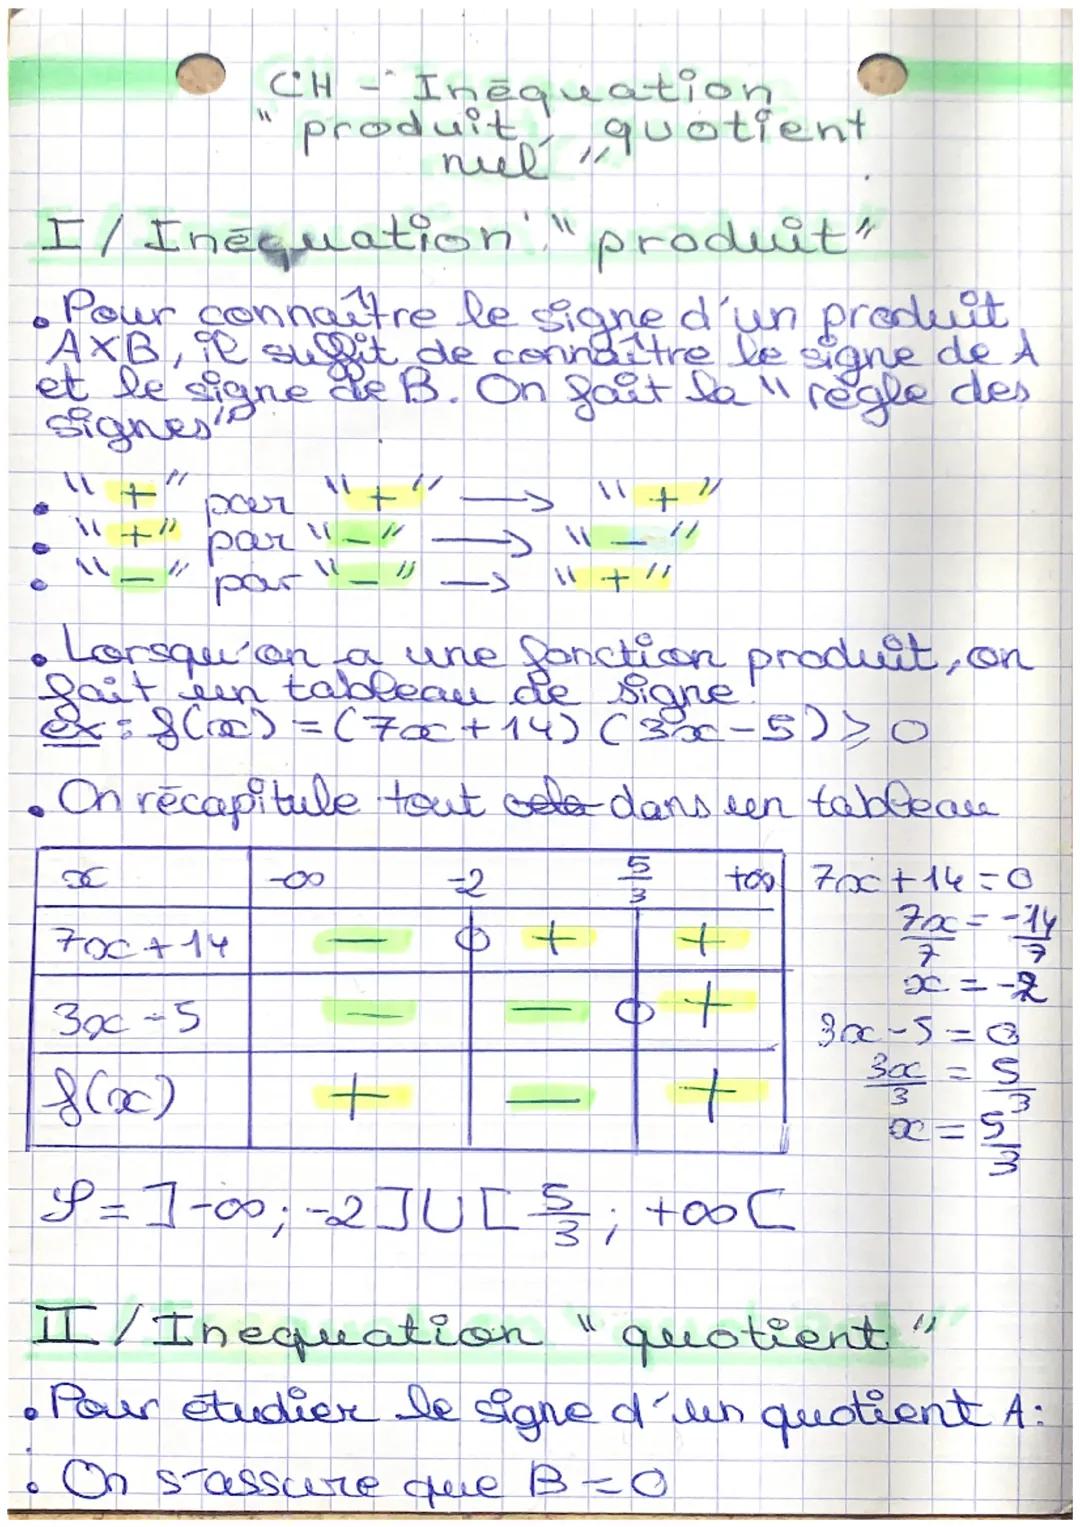 CH - Inéquation
"produit, quotient
nul"
I/ Inéquation "produit"
• Pour connaître le signe d'un produit
AxB, il suffit de connaître le signe de A
et le signe de B. On fait la "règle des
signes"
• "+" par "+" → "+"
• "+" par "-" → "-"
• "-" par "-" → "+"
• Lorsqu'on a une fonction produit, on
fait un tableau de signe.
ex: f(x) = (7x+14) (3x-5) ≥ 0
• On récapitule tout cela dans un tableau
x -∞ -2 5/3 +∞
7x+14 - 0 + +
3x-5 - - 0 +
f(x) + - +
7x+14=0
7x/7 = -14/7
x = -2
3x-5=0
3x/3 = 5/3
x = 5/3
S = ]-∞; -2] U [5/3; +∞[
II/ Inequation "quotient"
• Pour étudier le signe d'un quotient A:
• On s'assure que B=0